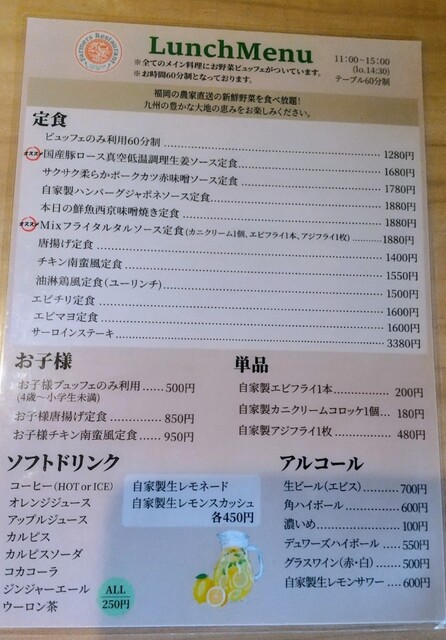 Farmers Restaurant
LunchMenu
※全てのメイン料理にお野菜ビュッフェがついています。
※お時間60分制となっております。
11:00~15:00
(lo.14:30)
テーブル60分制
福岡の農家直送の新鮮野菜を食べ放題!
九州の豊かな大地の恵みをお楽しみください。
定食
ビュッフェのみ利用60分制 1280円
オススメ 国産豚ロース真空低温調理生姜ソース定食 1680円
サクサク柔らかポークカツ赤味噌ソース定食 1780円
自家製ハンバーグジャポネソース定食 1880円
本日の鮮魚西京味噌焼き定食 1880円
オススメ Mixフライタルタルソース定食(カニクリーム1個、エビフライ1本、アジフライ1枚) 1880円
唐揚げ定食 1400円
チキン南蛮風定食 1550円
油淋鶏風定食(ユーリンチ) 1500円
エビチリ定食 1600円
エビマヨ定食 1600円
サーロインステーキ 3380円
お子様
お子様ブュッフェのみ利用 500円
(4歳~小学生未満)
お子様唐揚げ定食 850円
お子様チキン南蛮風定食 950円
単品
自家製エビフライ1本 200円
自家製カニクリームコロッケ1個 180円
自家製アジフライ1枚 480円
ソフトドリンク
コーヒー(HOT or ICE)
オレンジジュース
アップルジュース
カルピス
カルピスソーダ
コカコーラ
ジンジャーエール
ウーロン茶
ALL
250円
自家製生レモネード
自家製生レモンスカッシュ
各450円
アルコール
生ビール(エビス) 700円
角ハイボール 600円
濃いめ 100円
デュワーズハイボール 550円
グラスワイン(赤・白) 500円
自家製生レモンサワー 600円